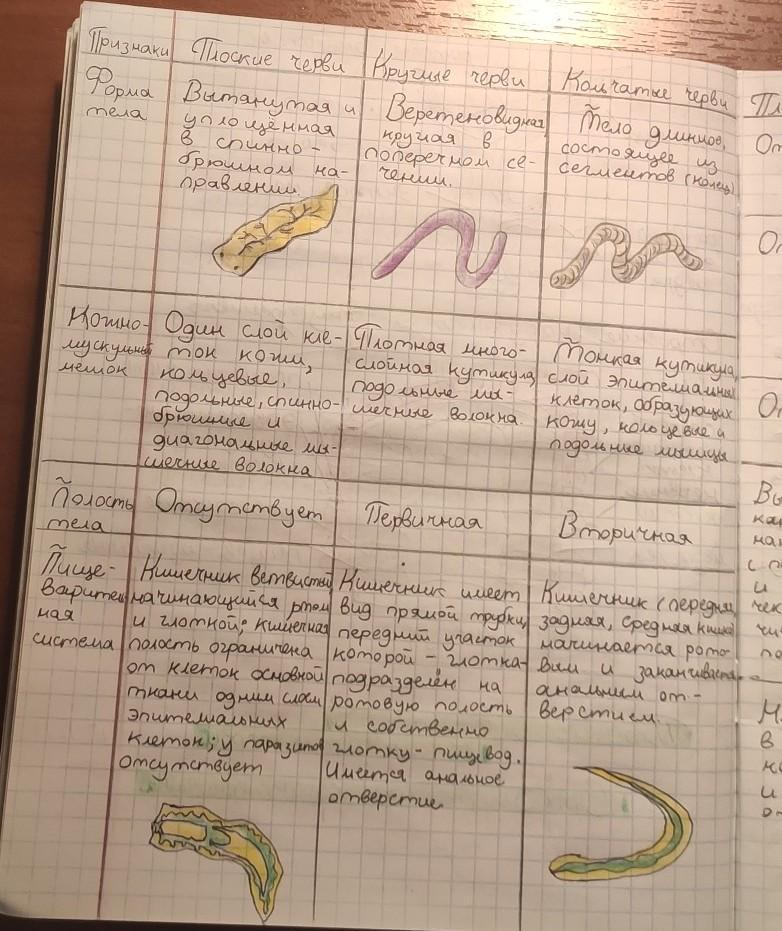 Признаки
Плоские черви
Круглые черви
Кольчатые черви
Форма
тела
Вытянутая и
уплощённая
в спинно-
брюшном на-
правлении.
Веретеновидная,
круглая в
поперечном се-
чении.
Тело длинное,
состоящее из
сегментов (колец)
Кожно-
мускульный
мешок
Один слой кле-
ток кожи,
кольцевые,
подольные, спинно-
брюшные и
диагональные мы-
шечные волокна
Плотная много-
слойная кутикула,
подольные мы-
шечные волокна.
Тонкая кутикула,
слой эпителиальных
клеток, образующих
кожу, кольцевые и
подольные мышцы
Полость
тела
Отсутствует
Первичная
Вторичная
Пище-
варитель
ная
система
Кишечник ветвистый
начинающийся ртом
и глоткой; кишечная
полость ограничена
от клеток основной
ткани одним слоем
эпителиальных
клеток; у паразитов
отсутствует
Кишечник имеет
вид прямой трубки,
передний участок
которой - глотка-
подразделён на
ротовую полость
и собственно
глотку - пищевод.
Имеется анальное
отверстие.
Кишечник (передняя,
задняя, средняя кишка)
начинается рото-
вым и заканчивается
анальным от-
верстием.